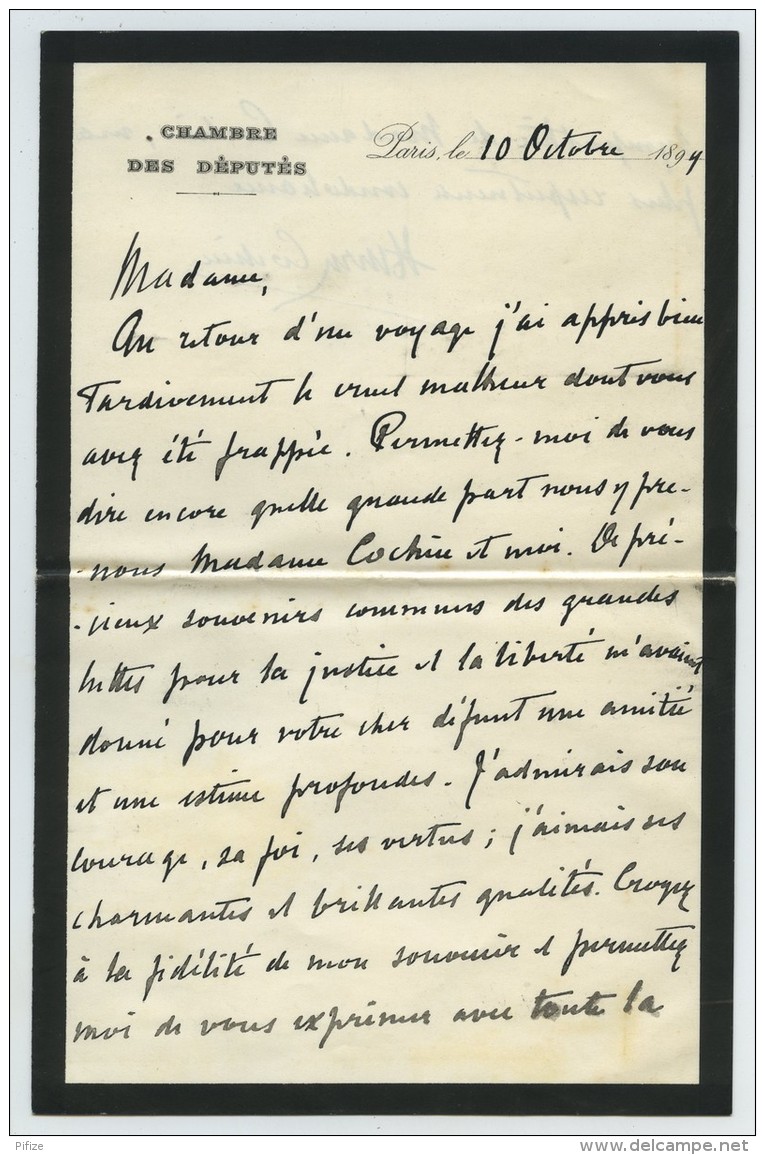 CHAMBRE
DES DÉPUTÉS
Paris, le 10 Octobre 1894
Madame,
Au retour d'un voyage j'ai appris bien
tardivement le cruel malheur dont vous
avez été frappée. Permettez-moi de vous
dire encore quelle grande part nous y pre-
-nons Madame Cochin et moi. De pré-
-cieux souvenirs communs des grandes
luttes pour la justice et la liberté m'avaient
donné pour votre cher défunt une amitié
et une estime profondes. J'admirais son
courage, sa foi, ses vertus; j'aimais ses
charmantes et brillantes qualités. Croyez
à la fidélité de mon souvenir et permettez
moi de vous exprimer avec toute la
Pifize
© www.delcampe.net